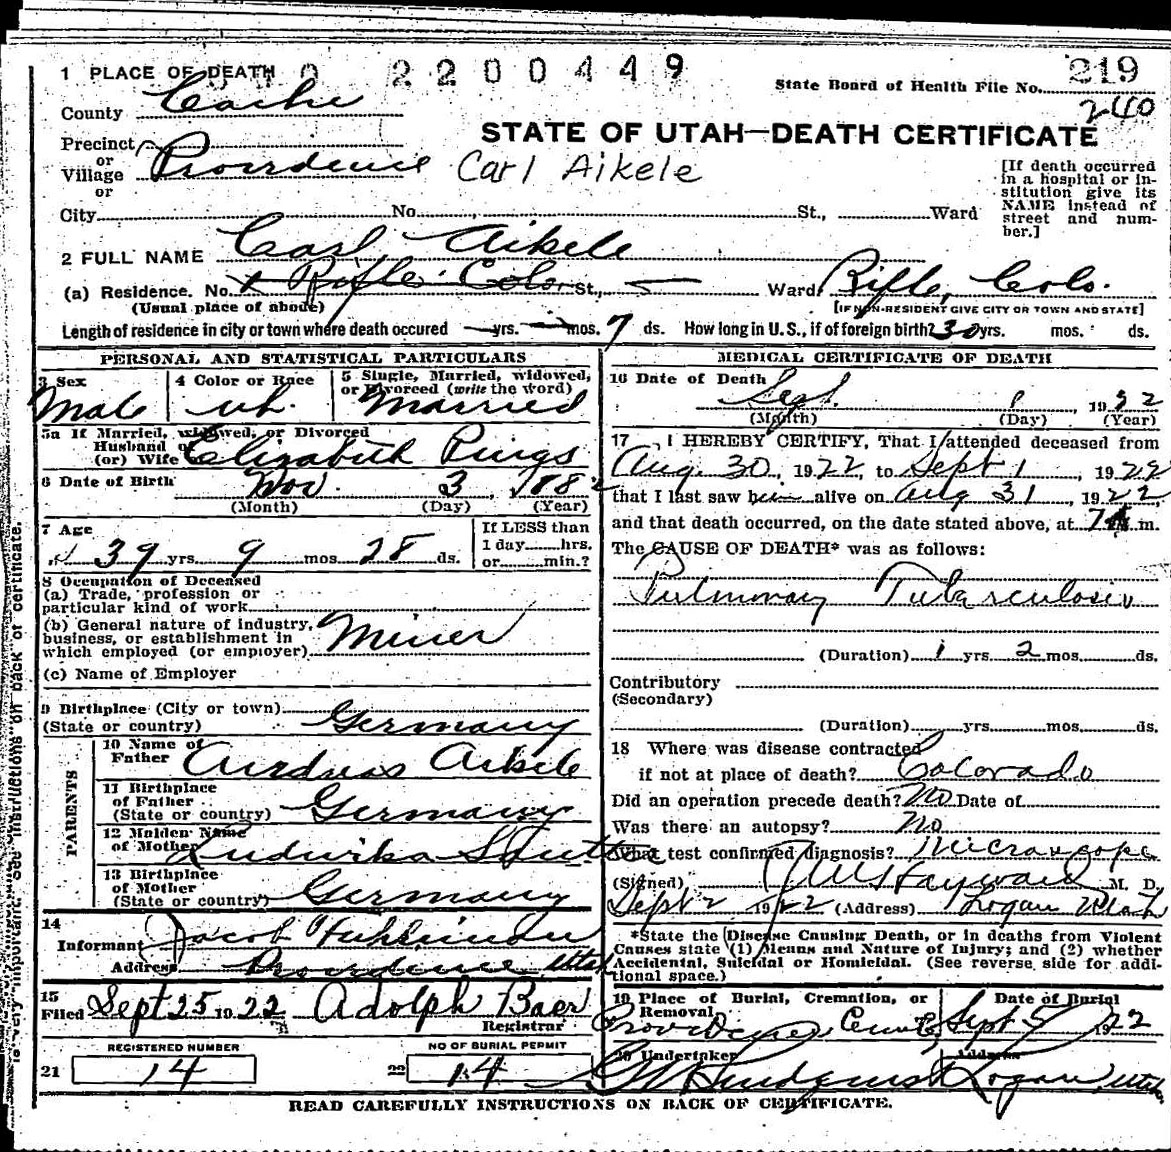 1 PLACE OF DEATH 2200449
State Board of Health File No. 219
240
County Cache
STATE OF UTAH—DEATH CERTIFICATE
Precinct
or
Village Providence Carl Aikele
or
[If death occurred
in a hospital or in-
stitution give its
NAME instead of
street and num-
ber.]
City No. St., Ward
2 FULL NAME Carl Aikele
(a) Residence. No. Rifle Colo St., Ward. Rifle, Colo.
(Usual place of abode) [IF NON-RESIDENT GIVE CITY OR TOWN AND STATE]
Length of residence in city or town where death occured yrs. mos. 7 ds. How long in U.S., if of foreign birth? 30 yrs. mos. ds.
PERSONAL AND STATISTICAL PARTICULARS
3 Sex
Male
4 Color or Race
wh.
5 Single, Married, widowed,
or Divorced (write the word)
Married
5a If Married, widowed, or Divorced
Husband of
(or) Wife Elizabeth Pings
6 Date of Birth Nov. 3, 1882
(Month) (Day) (Year)
7 Age
39 yrs. 9 mos. 28 ds.
If LESS than
1 day hrs.
or min.?
8 Occupation of Deceased
(a) Trade, profession or
particular kind of work
(b) General nature of industry,
business, or establishment in
which employed (or employer) Miner
(c) Name of Employer
9 Birthplace (City or town)
(State or country) Germany
PARENTS
10 Name of
Father Andreas Aikele
11 Birthplace
of Father
(State or country) Germany
12 Maiden Name
of Mother Ludwika
13 Birthplace
of Mother
(State or country) Germany
14
Informant Jacob Fuhriman
Address Providence Utah
15
Filed Sept 25 1922 Adolph Baer
Registrar
REGISTERED NUMBER
21 14
NO OF BURIAL PERMIT
22 14
MEDICAL CERTIFICATE OF DEATH
16 Date of Death Sept. 1, 1922
(Month) (Day) (Year)
17 I HEREBY CERTIFY, That I attended deceased from
Aug. 30, 1922, to Sept 1, 1922
that I last saw him alive on Aug 31, 1922,
and that death occurred, on the date stated above, at 7 A m.
The CAUSE OF DEATH* was as follows:
Pulmonary Tuberculosis
(Duration) 1 yrs. 2 mos. ds.
Contributory
(Secondary)
(Duration) yrs. mos. ds.
18 Where was disease contracted
if not at place of death? Colorado
Did an operation precede death? No Date of
Was there an autopsy? No
What test confirmed diagnosis? Microscope
(Signed) Hayward M. D.
Sept 2 1922 (Address) Logan Utah
*State the Disease Causing Death, or in deaths from Violent
Causes state (1) Means and Nature of Injury; and (2) whether
Accidental, Suicidal or Homicidal. (See reverse side for addi-
tional space.)
19 Place of Burial, Cremation, or
Removal
Providence Cemt
Date of Burial
Sept 5 1922
20 Undertaker
Lindquist
Address
Logan Utah
READ CAREFULLY INSTRUCTIONS ON BACK OF CERTIFICATE.
very important. See instructions on back of certificate.